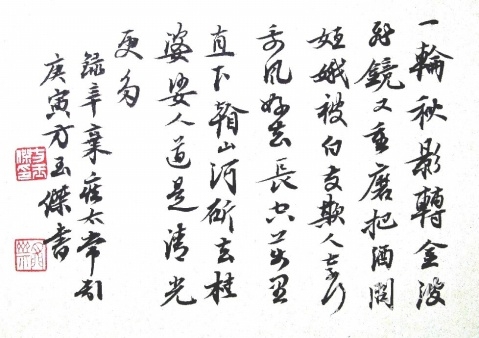 一輪秋影轉金波
飛鏡又重磨把酒問
姮娥被白髮欺人奈何
乘風好去長空萬里
直下看山河斫去桂
婆娑人道是清光
更多
錄辛棄疾太常引
庚寅方玉傑書